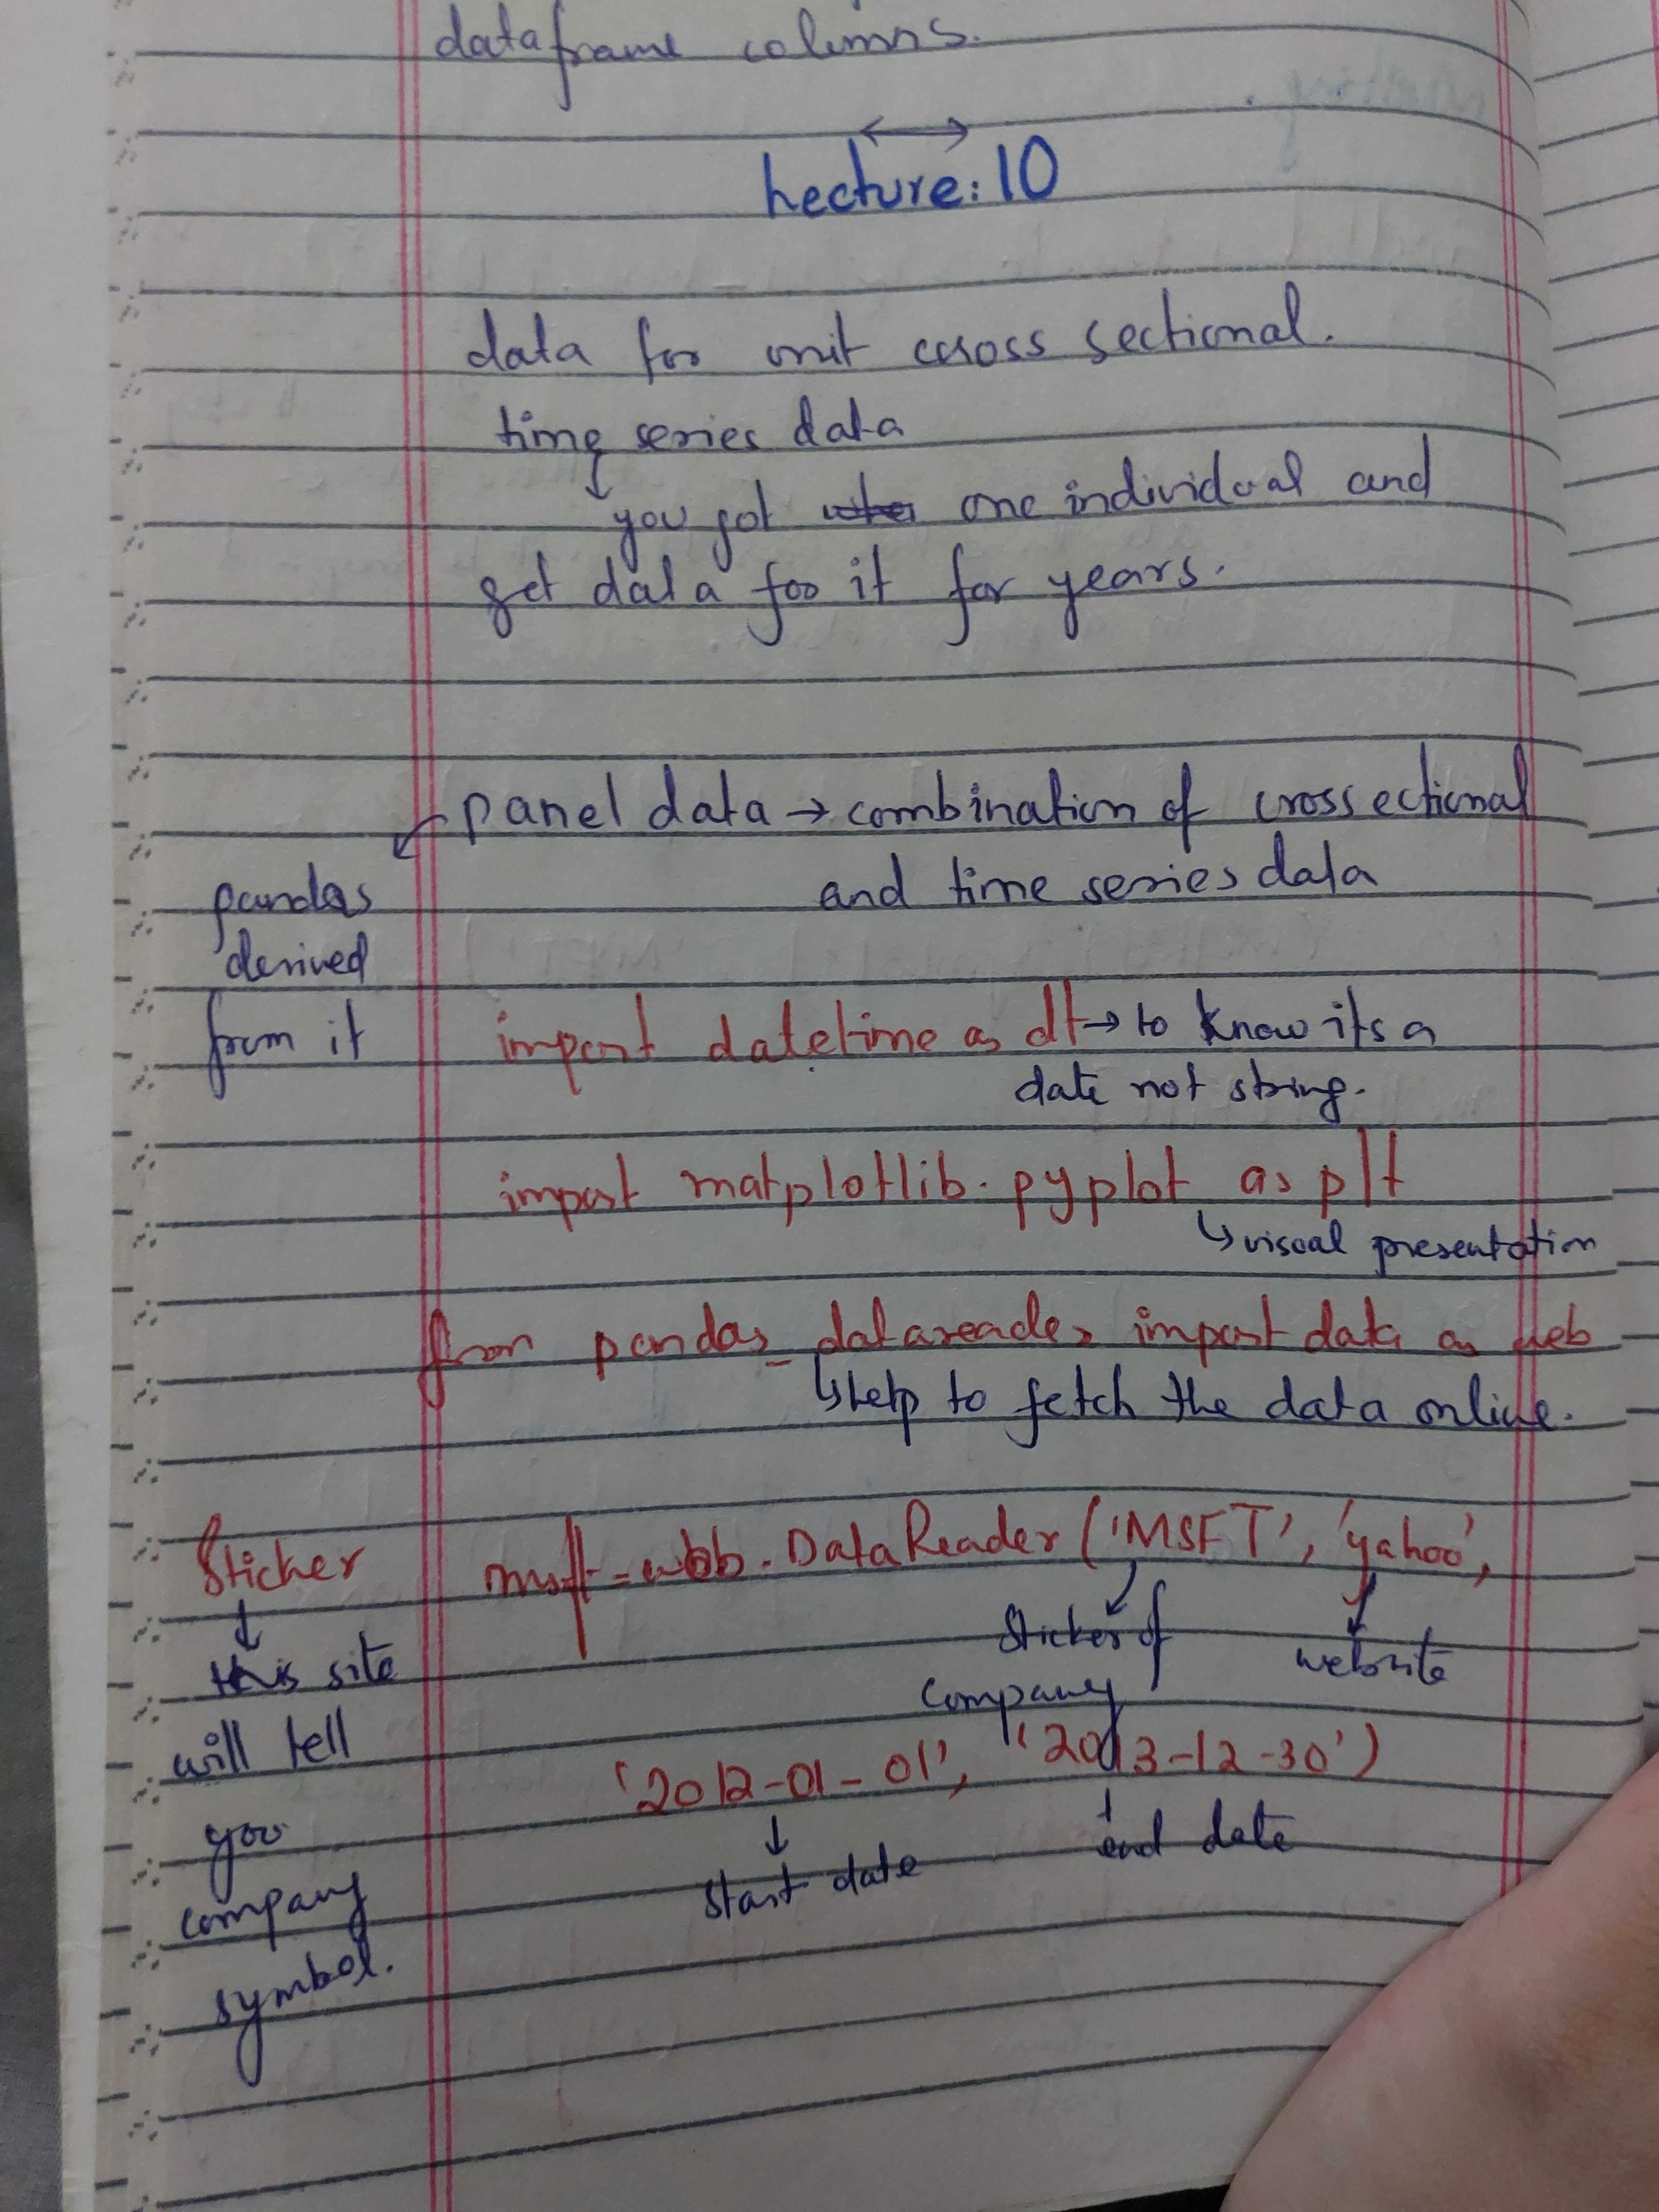 dataframe columns.
Lecture: 10
data for unit cross sectional.
time series data
you got one individual and
get data for it for years.
panel data → combination of crossectional
and time series data
pandas
derived
from it
import datetime as dt → to know its a
date not string.
import matplotlib.pyplot as plt
↳ visual presentation
from pandas_datareader import data as web
↳ help to fetch the data online.
Sticker
this site
will tell
you
company
symbol.
msft = web.DataReader('MSFT', 'yahoo',
Sticker of
company
website
'2012-01-01', '2013-12-30')
start date
end date